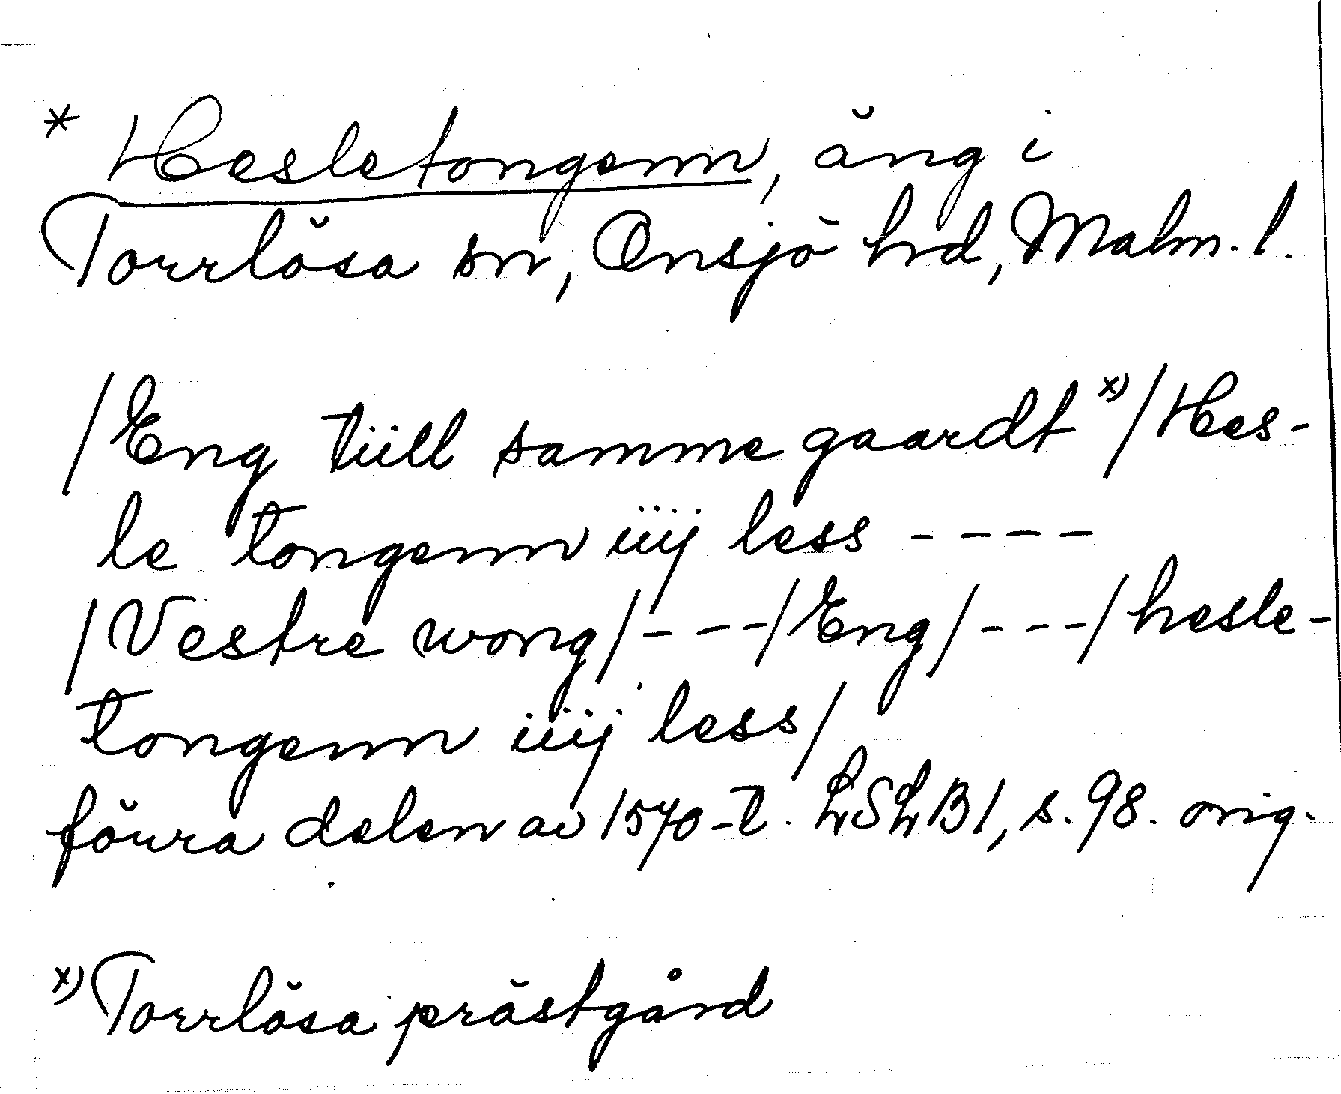 * Hesletongenn, äng i
Torrlösa sn, Onsjö hrd, Malm. l.
/Eng tiill samme gaardt x)/Hes-
le tongenn iiij less ----
/Vestre wong/---/Eng/---/hesle-
tongenn iiij less/
förra delen av 1570-t. LSLB1, s. 98. orig.
x) Torrlösa prästgård